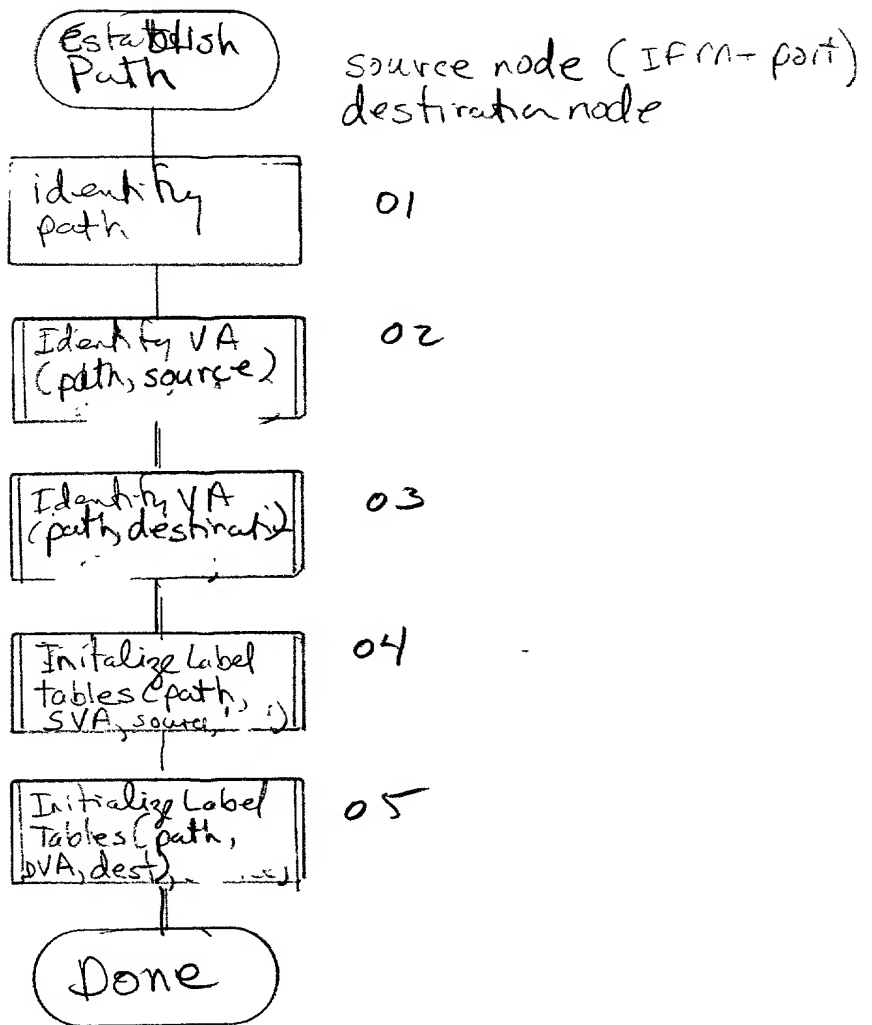 Establish
Path
source node (IFM- port)
destination node
identify
path
01
Identify VA
(path, source)
02
Identify VA
(path, destinati)
03
Initalize Label
tables (path,
SVA, source,
04
Initialize Label
Tables (path,
DVA, dest),
05
Done